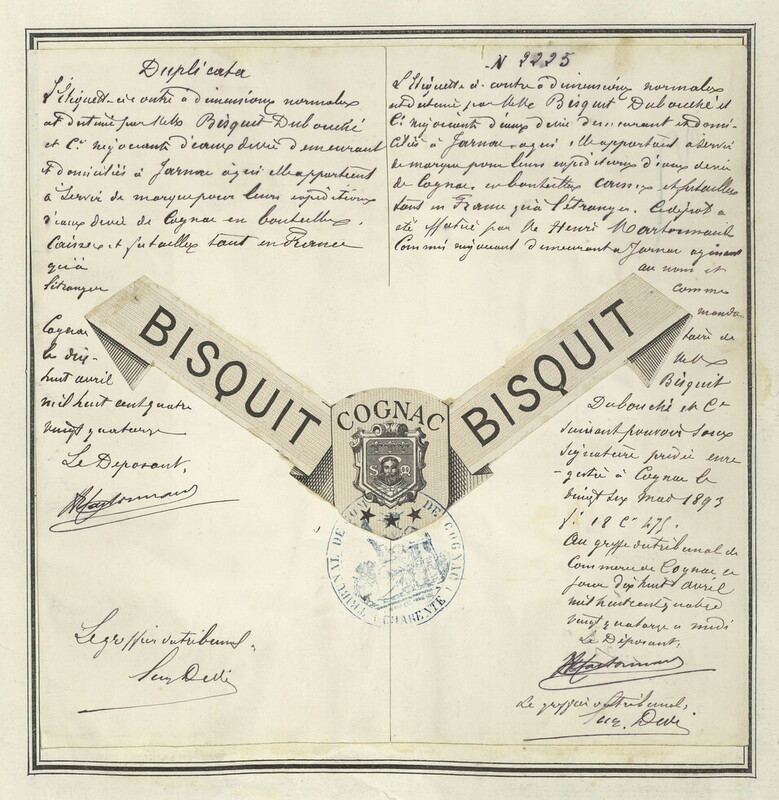 Duplicata
L'étiquette ci-contre a dimensions normales
est destiné par MM Bisquit Dubouché
et Cie négociants d'eaux de vie demeurant
et domiciliés à Jarnac à qui elle appartient
à servir de marque pour leurs expéditions
d'eaux de vie de Cognac en bouteilles,
caisses et futailles tant en France
qu'à
l'étranger
Cognac
le dix-
huit avril
mil huit cent quatre
vingt quatorze
Le Déposant,
Le greffier du tribunal,
N 2225
L'étiquette ci-contre a dimensions normales
est destiné par MM Bisquit Dubouché et
Cie négociants d'eaux de vie demeurant et domi-
ciliés à Jarnac à qui elle appartient à servir
de marque pour leurs expéditions d'eaux de vie
de Cognac en bouteilles caisses et futailles
tant en France qu'à l'étranger. Ce dépôt a
été effectué par Mr Henri
Commis négociant demeurant à Jarnac agissant
au nom et
comme
manda-
taire de
MM
Bisquit
Dubouché et Cie
suivant pouvoir sous
signature privée enre-
gistré à Cognac le
vingt six mai 1893
fo 18 Ce 475.
Au greffe du tribunal de
Commerce de Cognac ce
jour dix huit avril
mil huit cent quatre
vingt quatorze à midi
Le Déposant,
Le greffier du tribunal,
BISQUIT
COGNAC
BISQUIT
TRIBUNAL DE COMMERCE DE COGNAC
(CHARENTE)